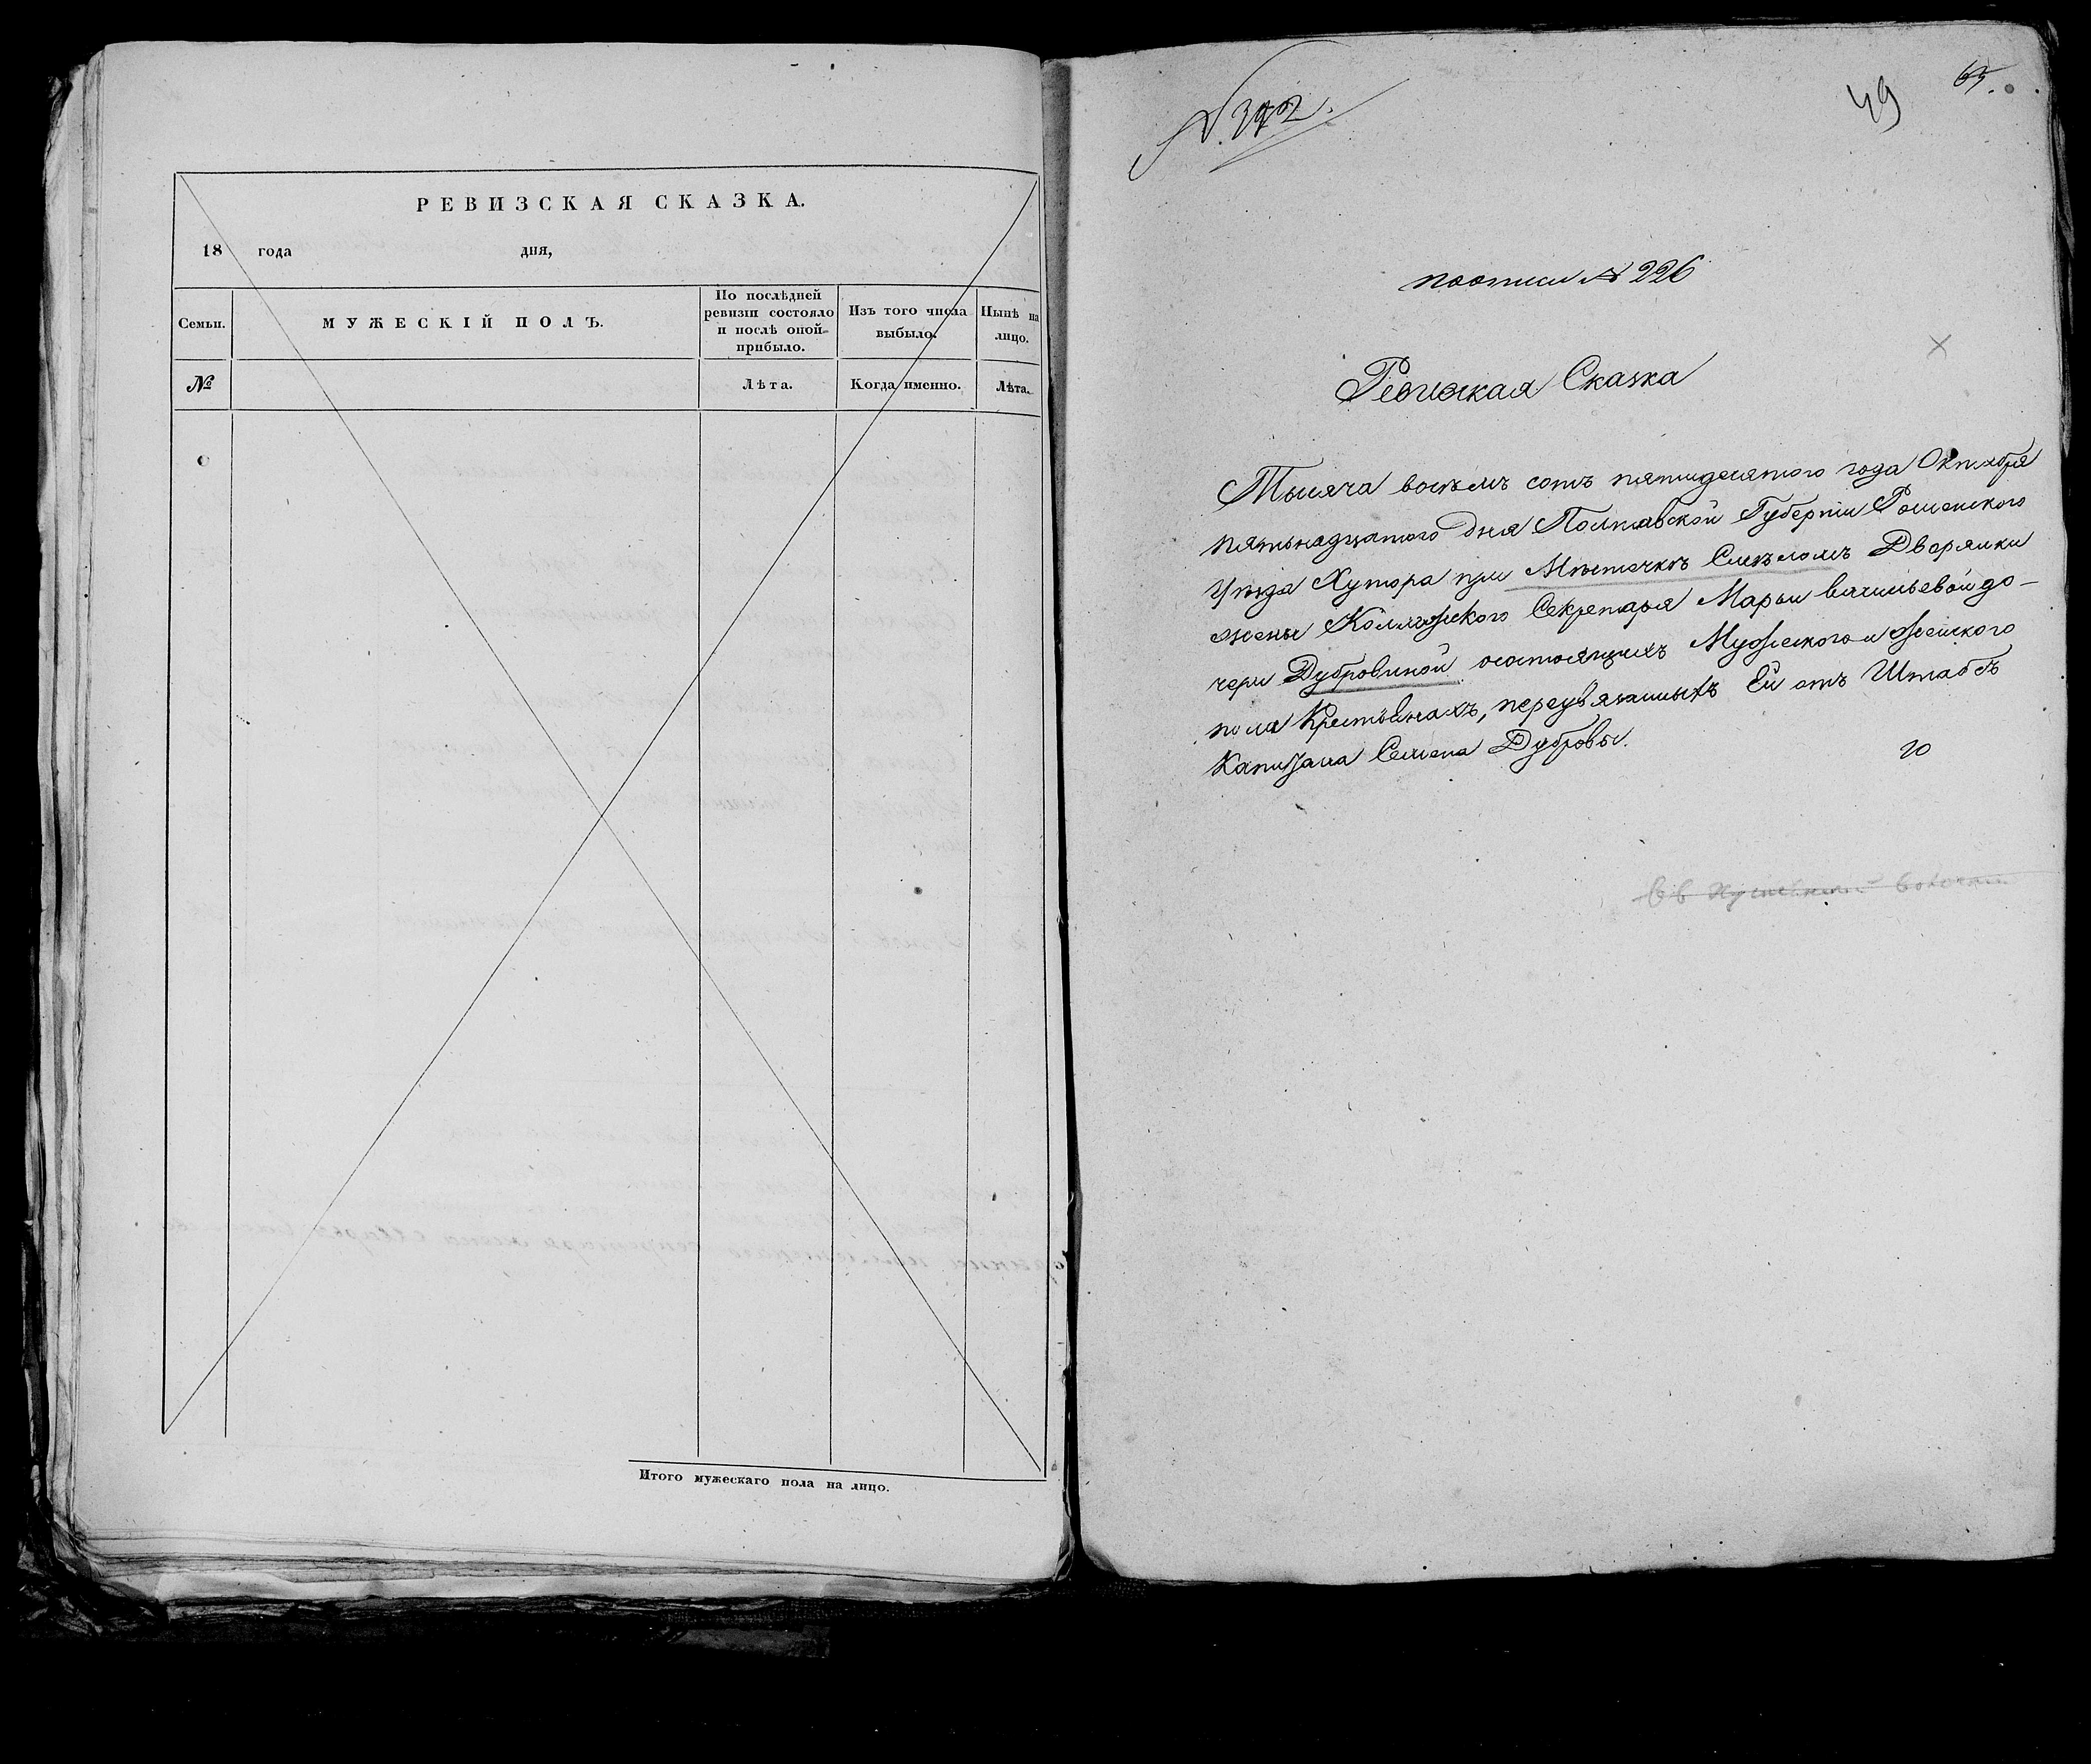 РЕВИЗСКАЯ СКАЗКА.
18 года дня,
Семьи.
МУЖЕСКІЙ ПОЛЪ.
По послѣдней
ревизіи состояло
и послѣ оной
прибыло.
Изъ того числа
выбыло.
Нынѣ на
лицо.
№
Лѣта.
Когда именно.
Лѣта.
Итого мужескаго пола на лицо.
49
65.
поописи № 226
Ревизская Сказка
Тысяча восѣмъ сотъ пятидесятого года Октября
пятьнадцатого дня Полтавской Губерніи Роменского
Уѣзда Хутора при Мѣстечкѣ Смѣломъ Дворянки
жены Коллежского Секретаря Марьи Васильевой до-
чери Дубровиной осостоящихъ Мужеского и женского
пола Крестьянахъ, передъвязанныхъ Ей отъ Штабсъ
Капитана Семена Дубровы.
20